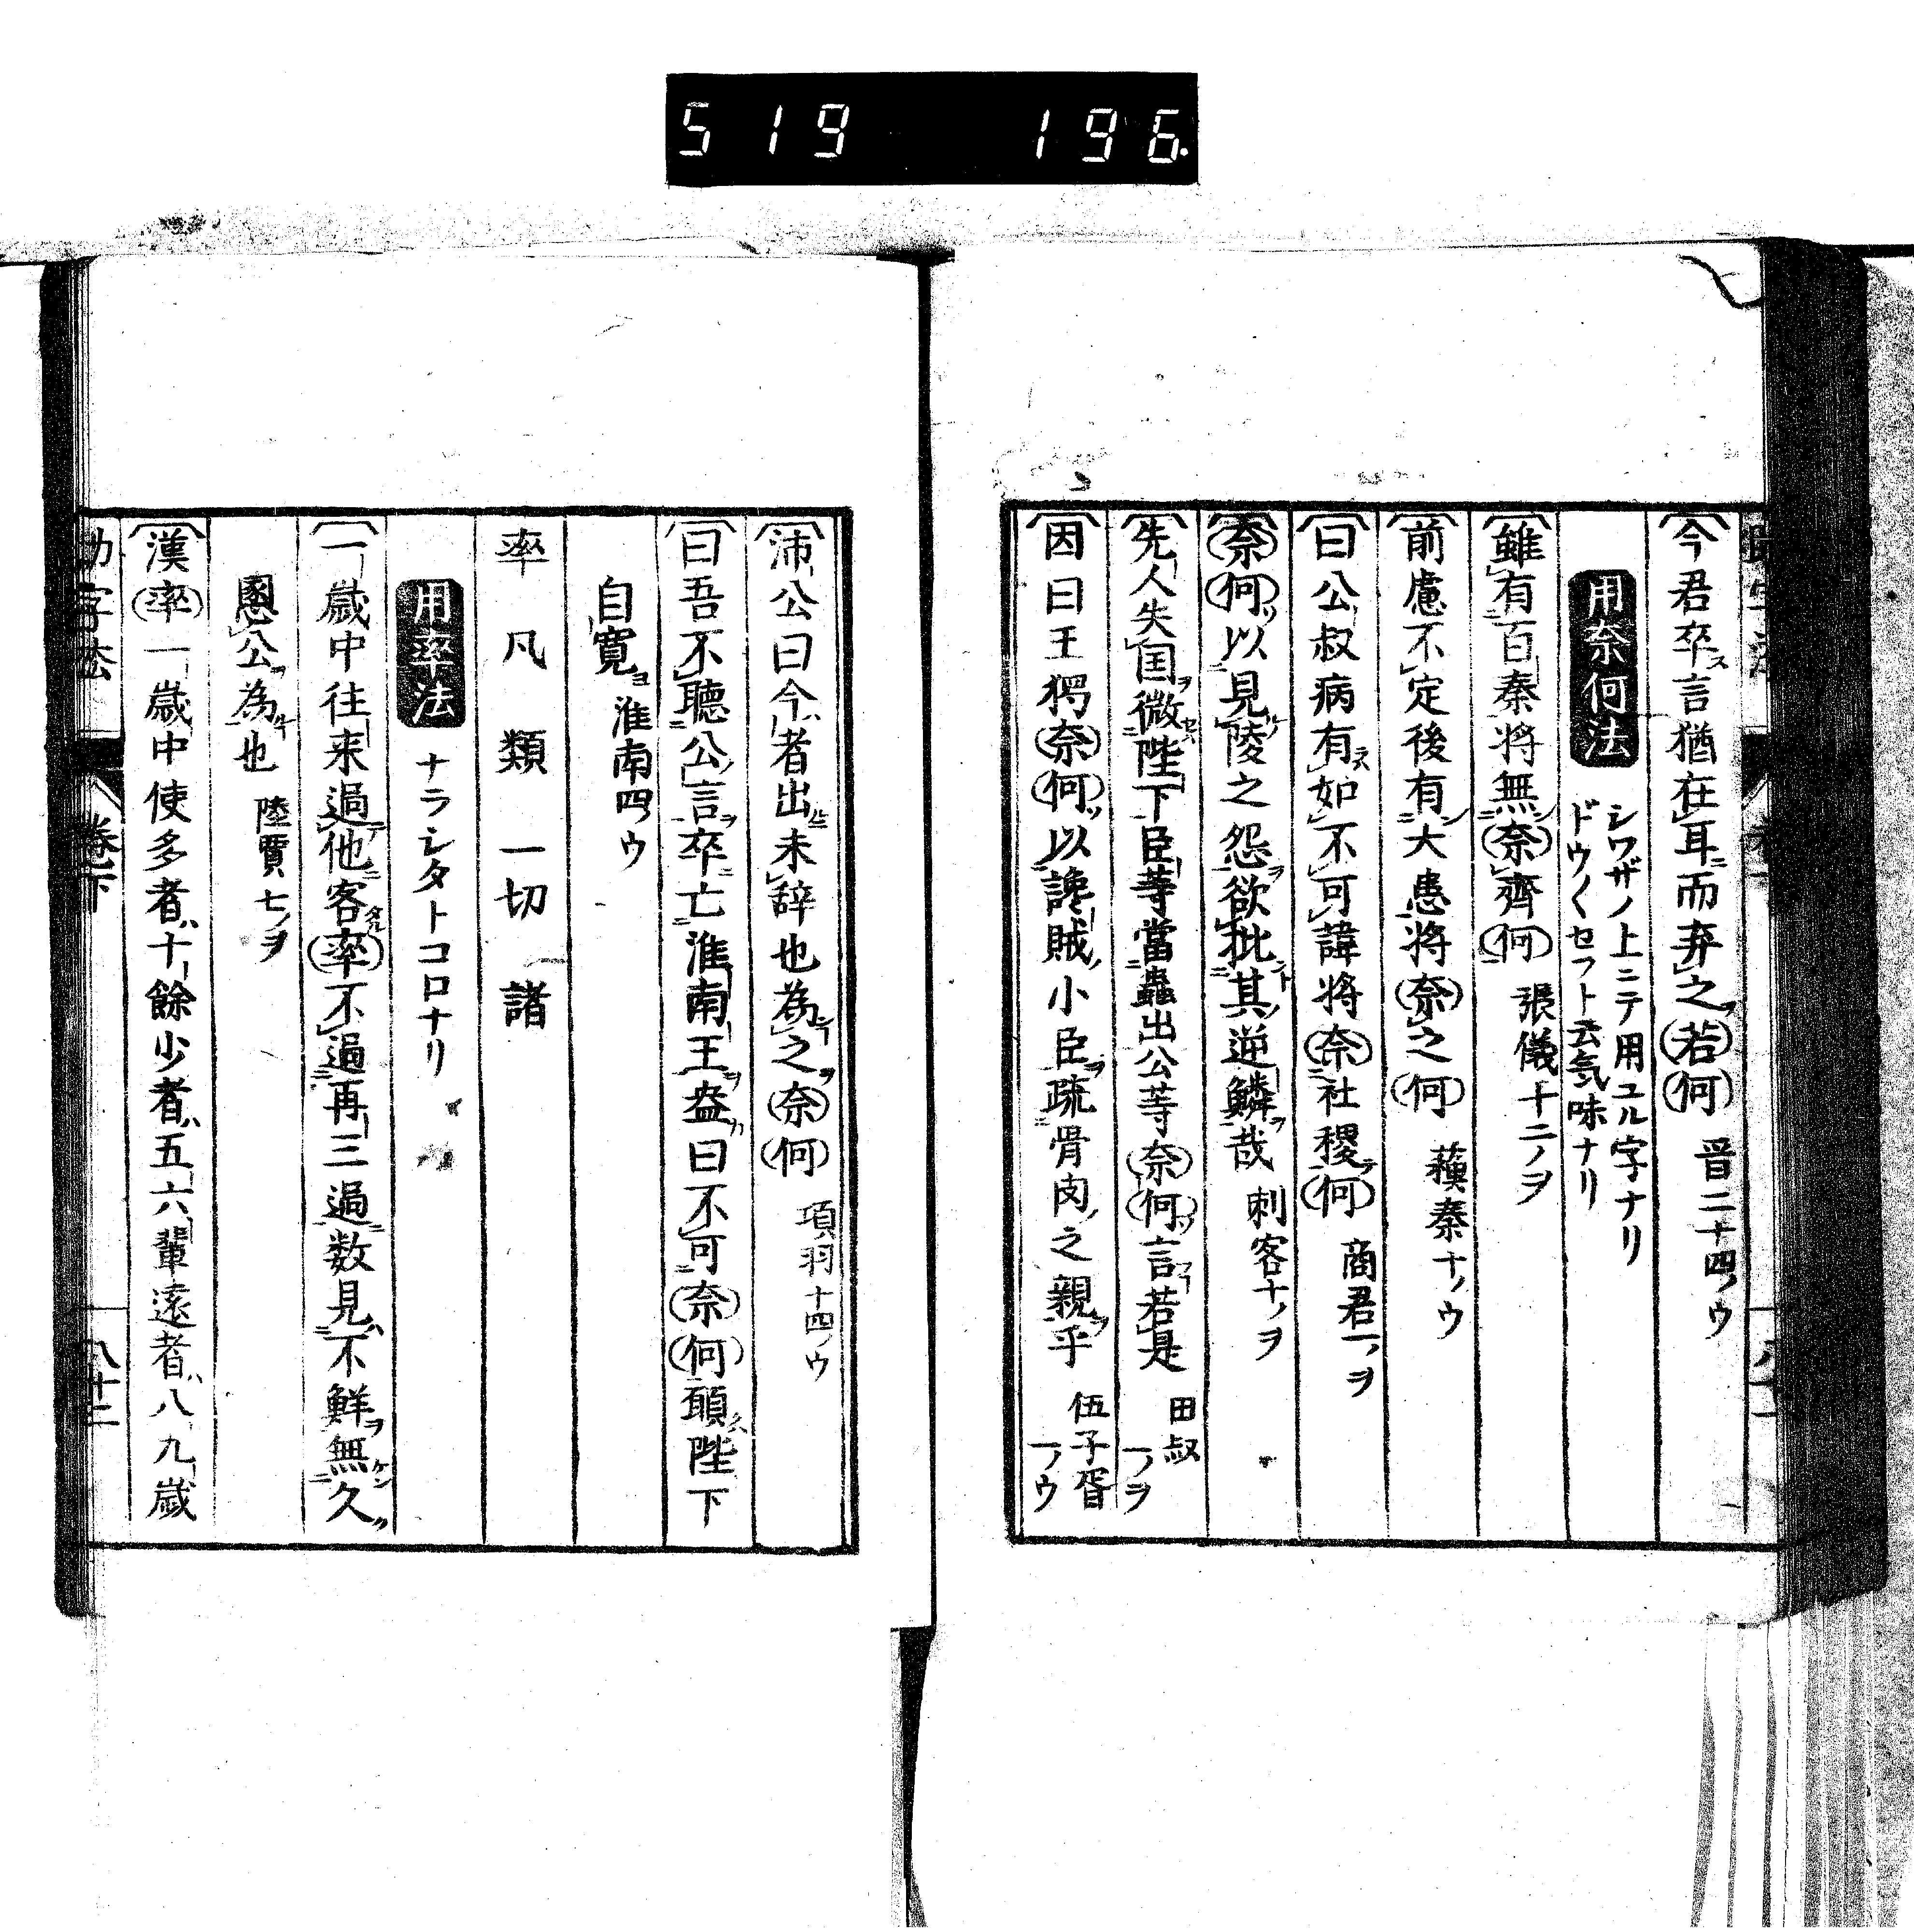 519 196
今君卒言猶在耳而弃之若何 晋二十四ノウ
用奈何法 シワザノ上ニテ用ユル字ナリ
ドウ〱セフト云気味ナリ
雖有百秦将無奈齊何 張儀十二ノヲ
前慮不定後有大患将奈之何 蘓秦十ノウ
曰公叔病有如不可諱将奈社稷何 商君一ノヲ
奈何以見陵之怨欲批其逆鱗哉 刺客十ノヲ
先人失国微陛下臣等當蟲出公等奈何言若是 田叔一ノヲ
因曰王獨奈何以讒賊小臣疏骨肉之親乎 伍子胥一ノウ
沛公曰今者出未辞也為之奈何 項羽十四ノウ
曰吾不聽公言卒亡淮南王盎曰不可奈何願陛下
自寛 淮南四ノウ
率凡類一切諸
用率法 ナラシタトコロナリ
一歳中往来過他客率不過再三過数見不鮮無久
慁公為也 陸賈七ノヲ
漢率一歳中使多者十餘少者五六輩遠者八九歳
助字法 巻下 八十二